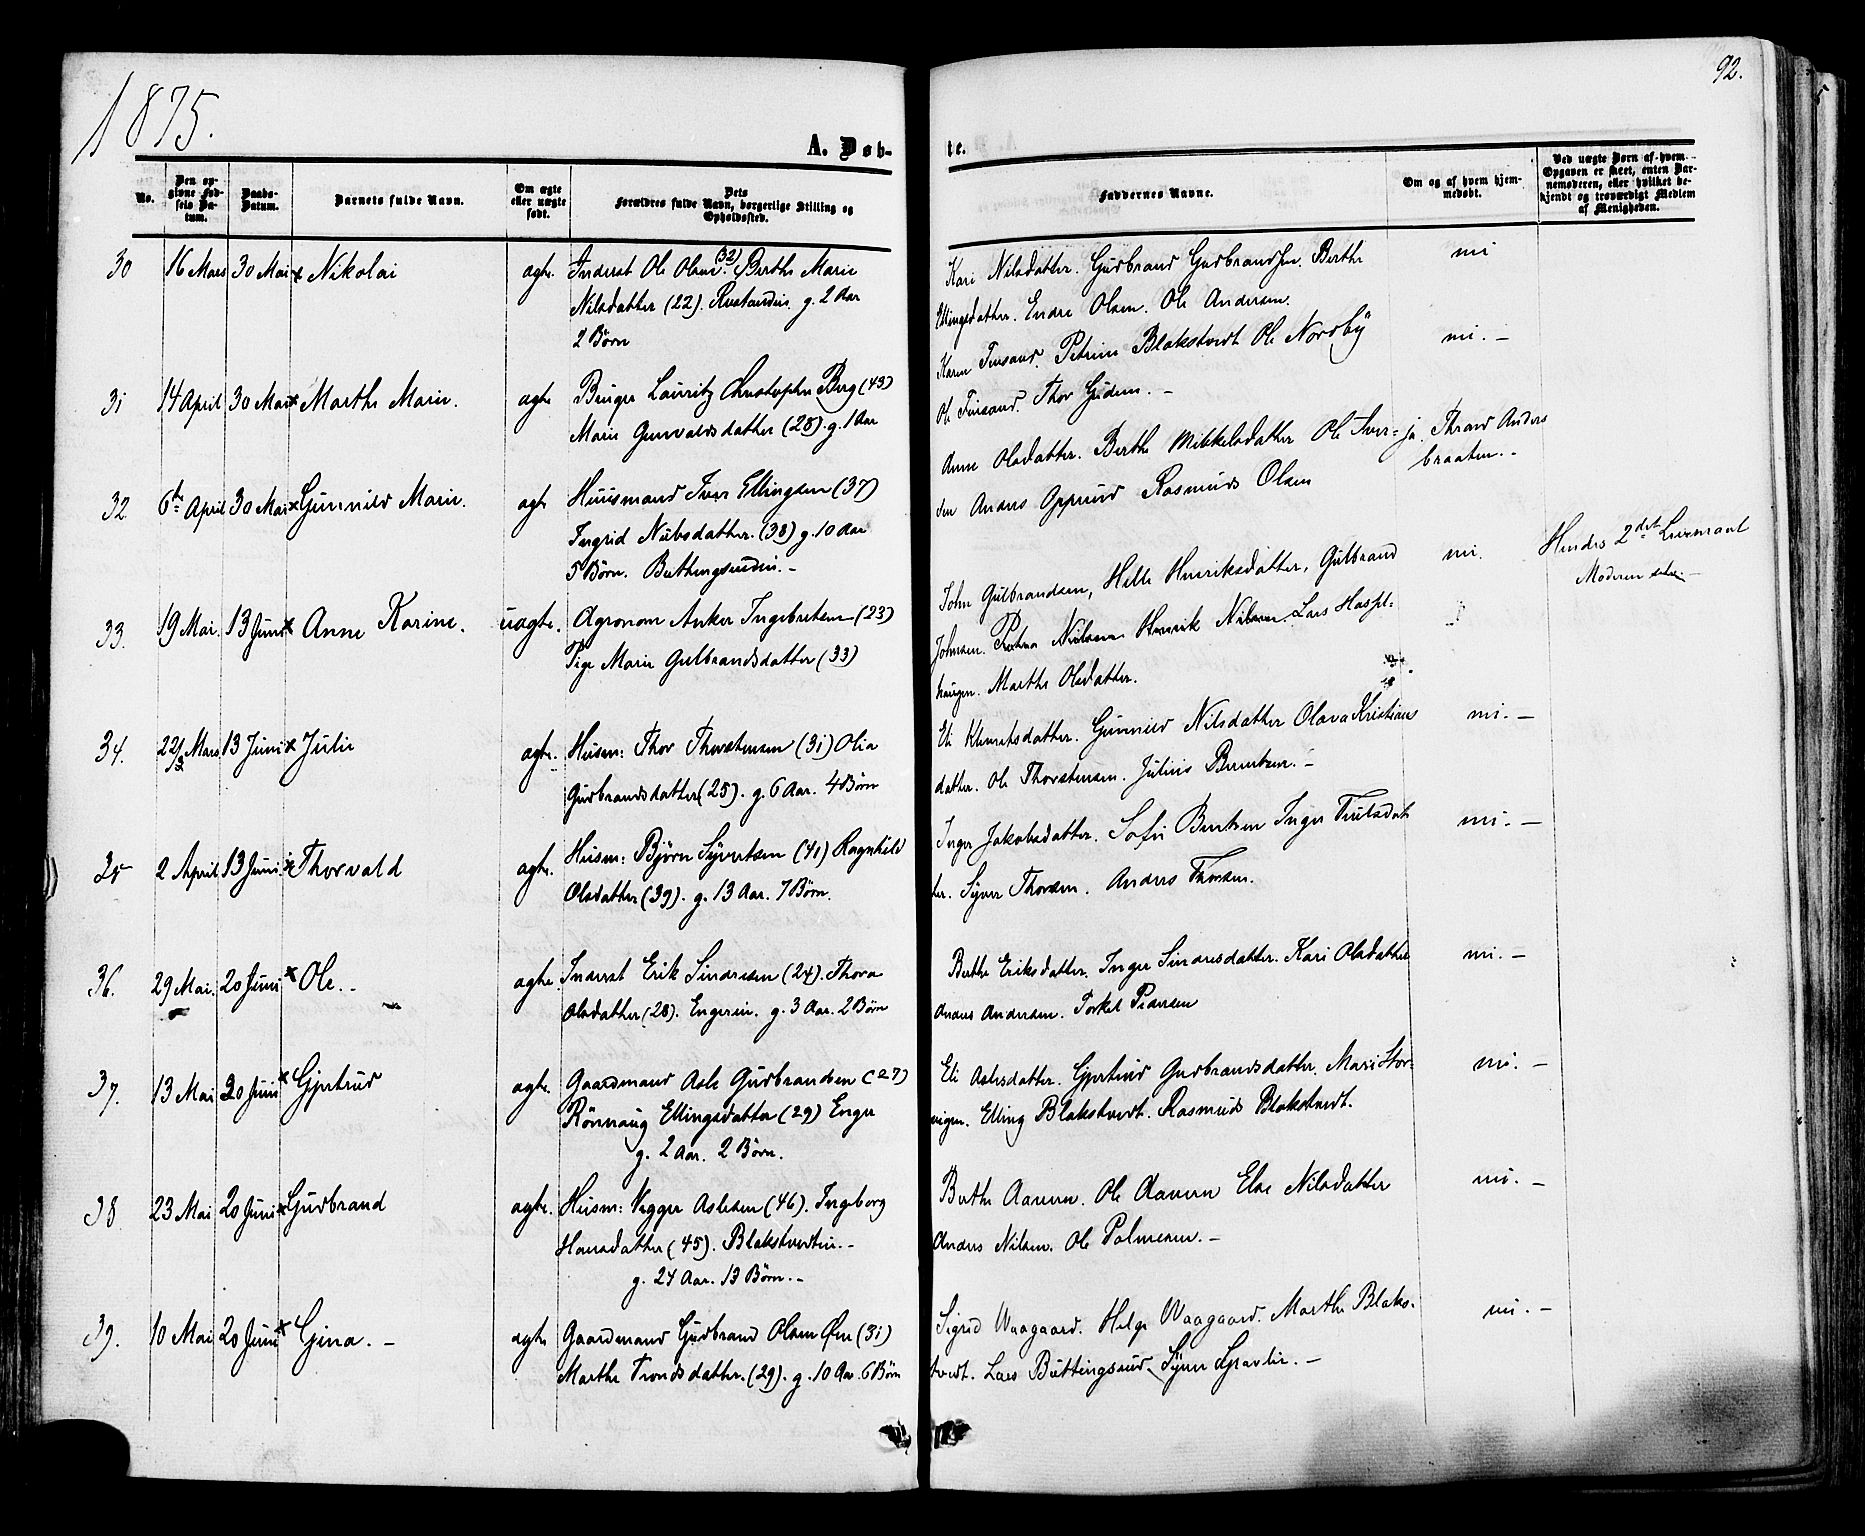 1875.
92.
A. Døb-
te.
No.
Den op-
givne Fød-
sels Da-
tum.
Daabs-
Datum.
Barnets fulde Navn.
Om ægte
eller uægte
født.
Dets
Forældres fulde Navn, borgerlige Stilling og
Opholdssted.
Faddernes Navne.
Om og af hvem hjem-
medøbt.
Ved uægte Børn af hvem
Opgaven er skeet, enten Bar-
nemoderen, eller hvilket be-
kjendt og troværdigt Medlem
af Menigheden.
30 16 Mars 30 Mai x Nikolai agte. Inderst Ole Olsen (32) Berthe Marie
Nilsdatter (22). g. 2 Aar
2 Børn
Kari Nilsdatter. Gudbrand Gudbrandsen. Berthe
Ellingsdatter. Endre Olsen. Ole Andersen.
ni
31 14 April 30 Mai x Marthe Marie. agte Lauritz Christopher Berg (43)
Marie Gunvaldsdatter (28). g. 1 Aar
Karen Finsand. Petrine Blakstvedt Ole Nordby
Ole Finsand. Thor Gudem. -
ni. -
32. 6te April 30 Mai x Gunnild Marie. agte Huusmand Iver Ellingsen (37)
Ingrid Nubsdatter. (38) g. 10 Aar
5 Børn. Buttingsrudei. -
Anne Olsdatter. Berthe Mikkelsdatter Ole Tver-
den Anders Opperud Rasmus Olsen
ja. Thrand Anders
braaten. -
33. 19 Mai. 13 Juni x Anne Karine. uagte. Agronom Anker Ingebretsen (23)
Pige Marie Gulbrandsdatter (33)
John Gulbrandsen, Helle Henriksdatter, Gulbrand
Johnsen. Nielsen Henrik Nilsen. Lars Haspel-
haugen. Marthe Olsdatter.
ni.
Hendes 2det Leiermaal
Moderen selv. -
34. 22/3 Mars 13 Juni x Julie agte. Husm: Thor Thorstensen (31) Olia
Gudbrandsdatter (25). g. 6 Aar. 4 Børn
Eli Klemetsdatter. Gunnild Nilsdatter Olava Kristians
datter. Ole Thorstensen. Julius Berntsen. -
ni. -
35 2 April 13 Juni x Thorvald agte. Husm: Bjørn Syvertsen (41) Ragnhild
Olsdatter (39). g. 13 Aar. 7 Børn.
Inger Jakobsdatter. Sofie Berntsen Inger Truelsdat
ter. Syver Thorsen. Anders Thorsen.
ni. -
36. 29 Mai. 20 Juni x Ole. - agte. Inderst Erik Sindresen (24). Thora
Olsdatter (28). Engerei. g. 3 Aar. 2 Børn
Berthe Eriksdatter. Inger Sindresdatter. Kari Olsdatter
Anders Andersen. Torkel Pedersen
ni. -
37. 13 Mai 20 Juni x Gjertrud agte. Gaardmand Asle Gudbrandsen (27)
Rønnaug Ellingsdatter (29) Enger
g. 2 Aar. 2 Børn.
Eli Aslesdatter. Gjertrud Gudbrandsdatter. Mari Stor-
vigen. Elling Blakstvedt. Rasmus Blakstvedt.
ni. -
38. 23 Mai 20 Juni x Gudbrand agte. Husm: Vegger Aslesen (46). Ingeborg
Hansdatter (45). Blakstvedtei. -
g. 24 Aar. 13 Børn. -
Berthe Aaveren. Ole Aaveren Else Nilsdatter
Anders Nilsen. Ole Palmesen. -
ni. -
39. 10 Mai 20 Juni x Gina. - agte Gaardmand Gudbrand Olsen Øen (31)
Marthe Trondsdatter. (29). g. 10 Aar. 6 Børn
Sigrid Waagaard. Helge Waagaard. Marthe Blaks-
tvedt. Lars Buttingsrud. Syver Gravlie. -
ni. -